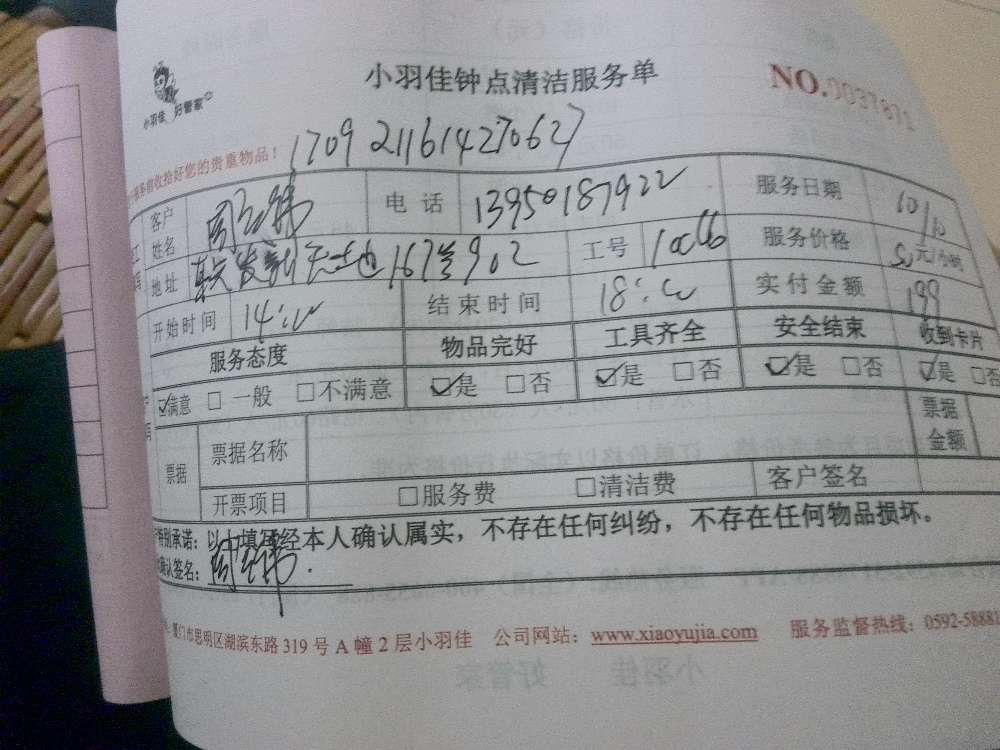 小羽佳 好管家
小羽佳钟点清洁服务单
NO.0037871
1709211614270627
您收拾好您的贵重物品!
客户姓名 电话 13950187922 服务日期 10/10
地址 167号902 工号 服务价格 50元/小时
开始时间 14:00 结束时间 18:00 实付金额 199
服务态度 物品完好 工具齐全 安全结束 收到卡片
☑满意 □一般 □不满意 ☑是 □否 ☑是 □否 ☑是 □否 ☑是 □否
票据 票据名称 票据金额
开票项目 □服务费 □清洁费 客户签名
特别承诺:以上填写经本人确认属实,不存在任何纠纷,不存在任何物品损坏。
确认签名:
厦门市思明区湖滨东路319号A幢2层小羽佳 公司网站:www.xiaoyujia.com 服务监督热线:0592-58881
小羽佳 好管家